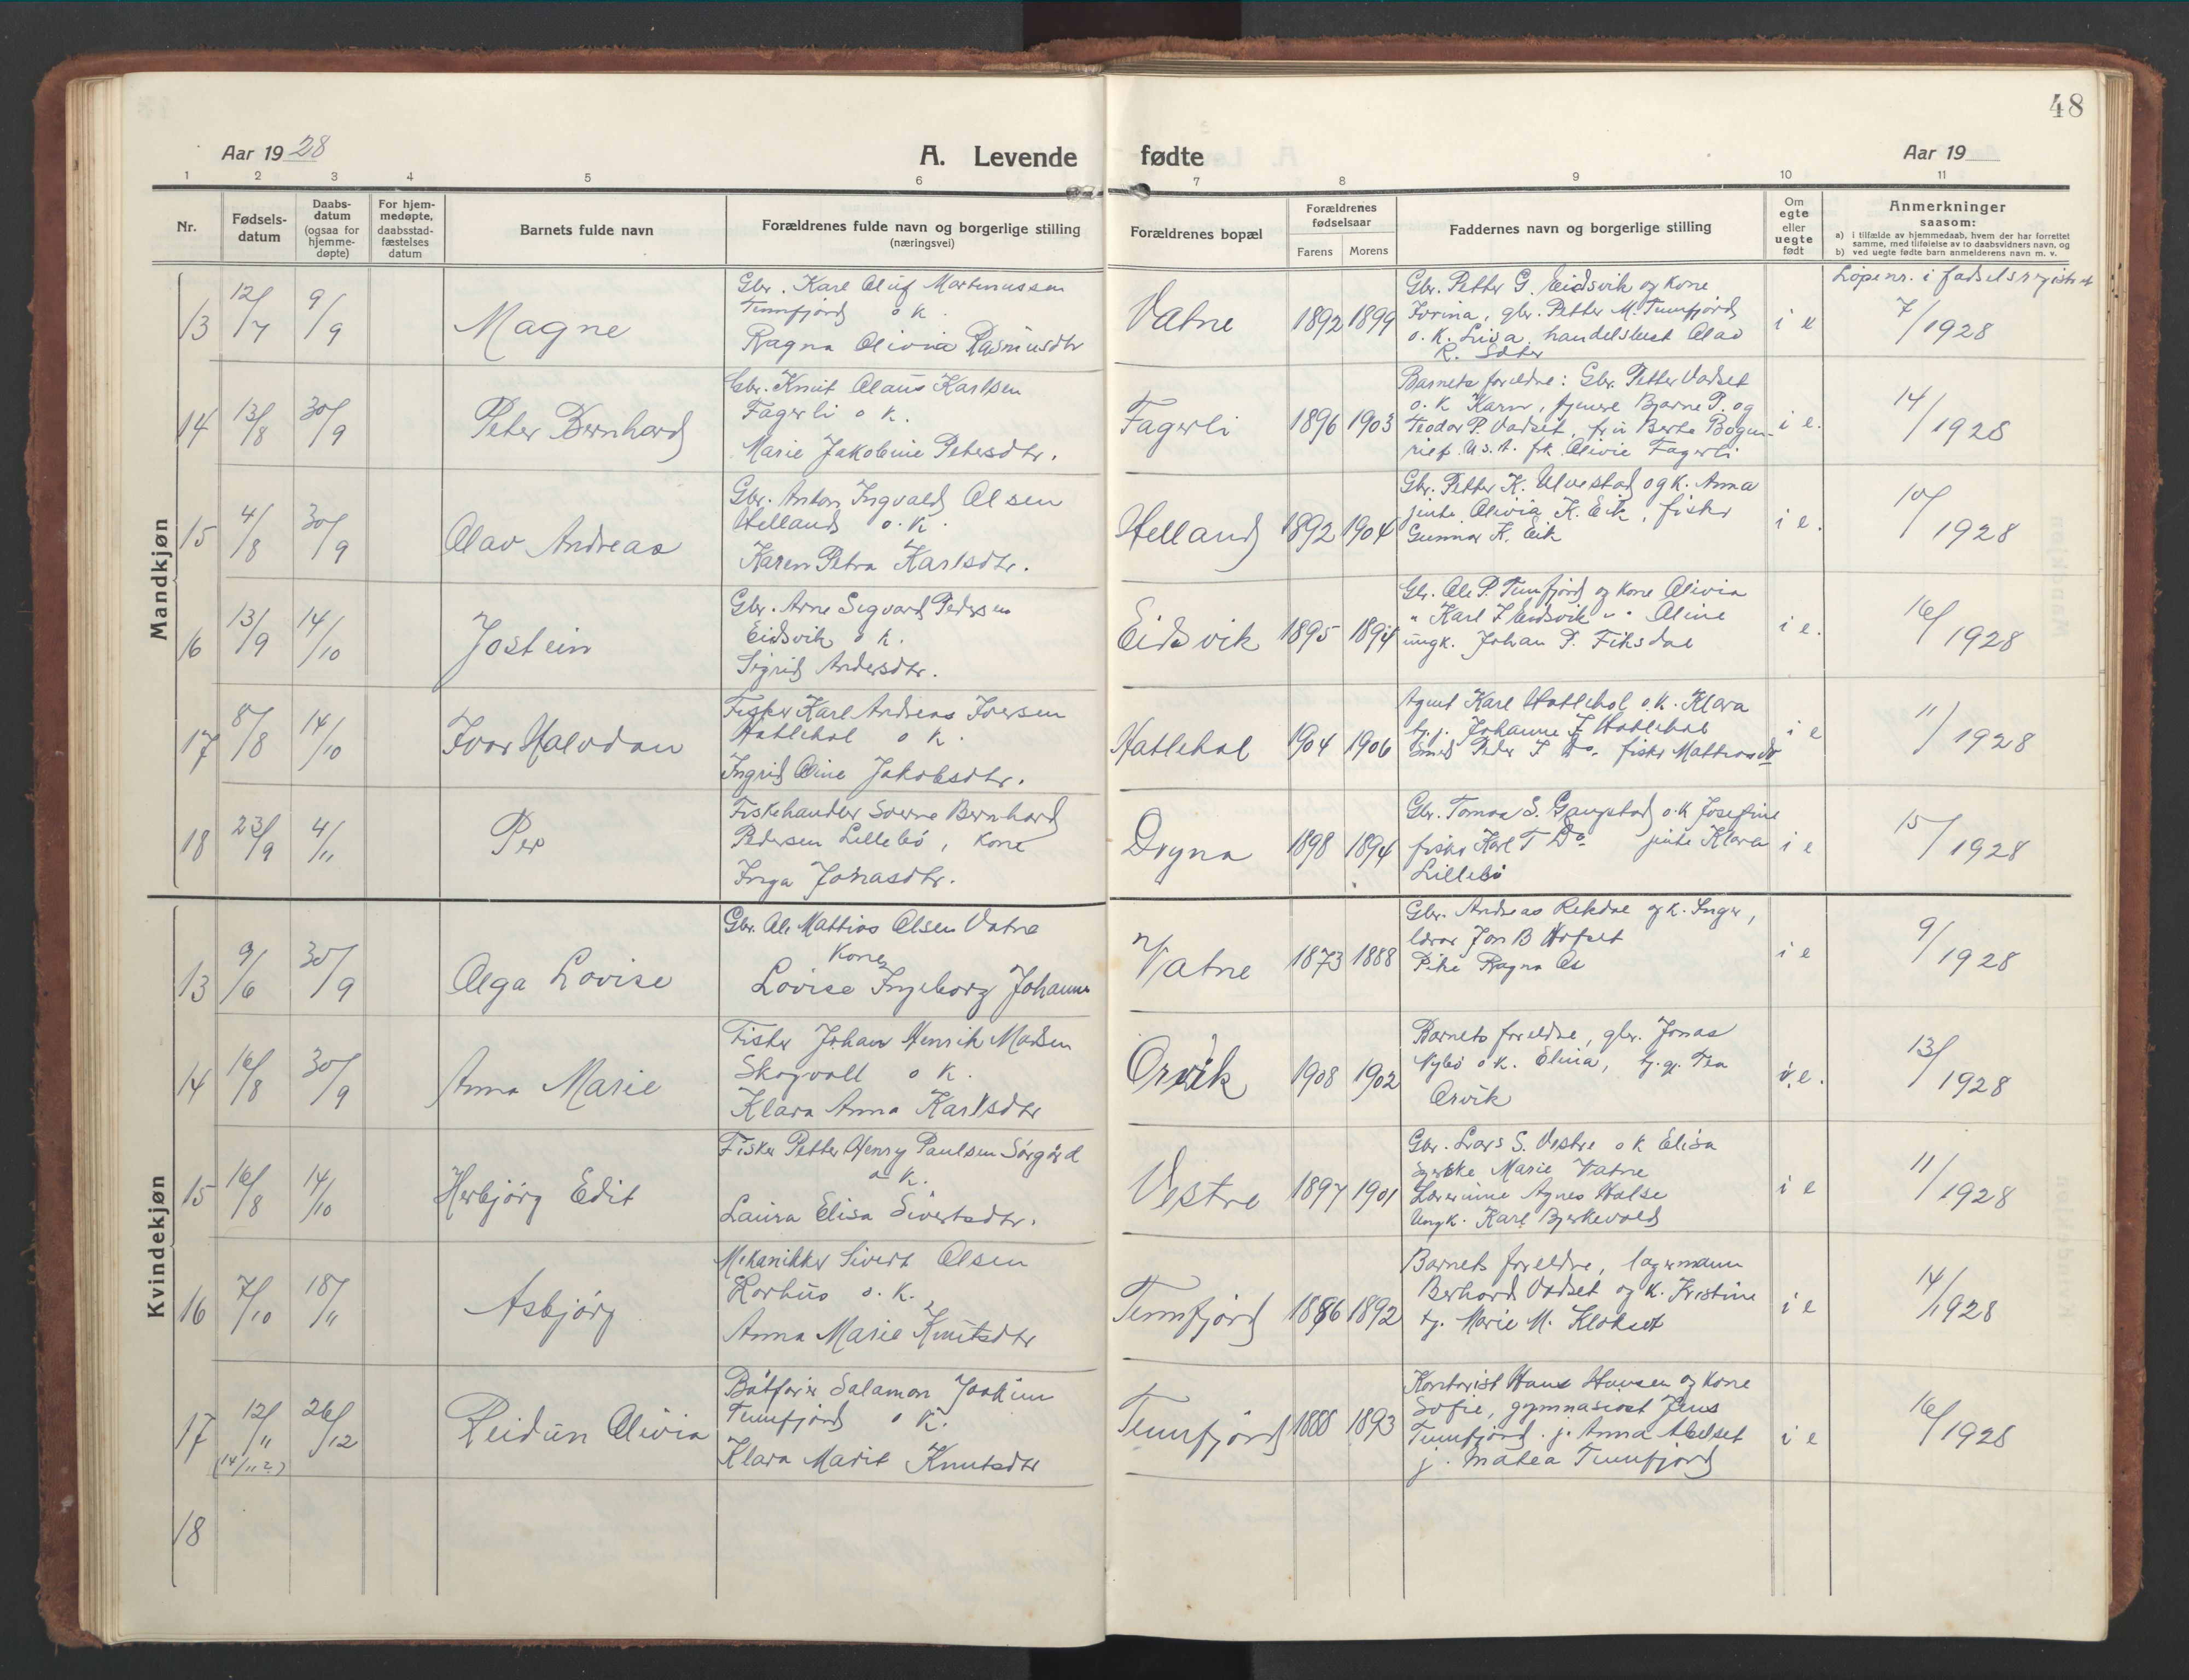 48
Aar 1928
A. Levende fødte
Aar 19
1 2 3 4 5 6 7 8 9 10 11
Nr.
Fødsels-
datum
Daabs-
datum
(ogsaa for
hjemme-
døpte)
For hjem-
medøpte,
daabsstad-
fæstelses
datum
Barnets fulde navn
Forældrenes fulde navn og borgerlige stilling
(næringsvei)
Forældrenes bopæl
Forældrenes
fødselsaar
Farens Morens
Faddernes navn og borgerlige stilling
Om
egte
eller
uegte
født
Anmerkninger
saasom:
a) i tilfælde av hjemmedaab, hvem der har forrettet
samme, med tilføielse av to daabsvidners navn, og
b) ved uegte fødte barn anmelderens navn m. v.
Mandkjøn
Løpenr. i fødselsregistret
13 12/7 9/9 Magne
Gbr. Karl Oluf Martinussen
Tennfjord o k.
Ragna Olivia Rasmusdtr
Vatne 1892 1899
Gbr. Petter G. Eidsvik og kone
Jorina, gbr. Petter M. Tennfjord
o. k. Lisa, handelsbest Olav
R. Sæter
i e
7/1928
14 13/8 30/9 Peter Bernhard
Gbr. Knut Olaus Karlsen
Fagerli o k.
Marie Jakobine Petersdtr.
Fagerli 1896 1903
Barnets foreldre: Gbr. Petter Vadset
o. k Karn, Bjarne P. og
Teodor P. Vadset, fru Berte
U.S.A. frk Olivie Fagerli
i e.
14/1928
15 4/8 30/9 Olav Andreas
Gbr. Anton Ingvald Olsen
Helland o. k.
Karen Petra Karlsdtr.
Helland 1892 1904
Gbr. Petter K. Ulvestad og k. Anna
jente Olivia K. Eik, fisker
Gunnar K. Eik
i e.
10/1928
16 13/9 14/10 Jostein
Gbr. Arne Sigvard Pedersen
Eidsvik o k.
Sigrid Andersdtr.
Eidsvik 1895 1894
Gbr. Ole P. Tennfjord og kone Olivia
" Karl J Eidsvik " " Oline
ungk. Johan P. Fiksdal
i e.
16/1928
17 8/8 14/10 Ivar Halvdan
Fisker Karl Andreas Iversen
Hatlehol o k.
Ingrid Oline Jakobsdtr.
Hatlehol 1904 1906
Agent Karl Hatlehol o.k. Klara
tj.j. Johanne I Hatlehol
Smed Peder I Do. fisker Mattias do
i e
11/1928
18 23/9 4/11 Per
Fiskehandler Sverre Bernhard
Pedersen Lillebö, kone
Inga Jonasdtr.
Drgna 1898 1894
Gbr. Tomas S. Gangstad o.k Josefine
fisker Karl T Do. jente Klara
Lillebö
i e
15/1928
Kvindekjøn
13 9/6 30/9 Olga Lovise
Gbr. Ole Mattias Olsen Vatne
Kone
Lovise Ingeborg Johanne
Vatne 1873 1888
Gbr. Andreas Rekdal og k. Inger,
lærer Jon B Hofset
Pike Ragna Os
i e
9/1928
14 16/8 30/9 Anna Marie
Fisker Johan Henrik Madsen
Skogvoll o k.
Klara Anna Karlsdtr
Orvik 1908 1902
Barnets foreldre, gbr. Jonas
Nybö o k. Elina, tj.g. Tea
Orvik
i e.
13/1928
15 16/8 14/10 Herbjörg Edit
Fisker Petter Henry Paulsen Sörgård
o k.
Laura Elisa Sivertsdtr.
Vestre 1897 1901
Gbr. Lars S. Vestre o k Elisa
Marie Vatne
Lærerinne Agnes Halse
Ungk. Karl Bjerkevold
i e
11/1928
16 7/10 18/11 Asbjörg
Mekanikker Sivert Olsen
Korhus o. k.
Anna Marie Knutsdtr
Tennfjord 1886 1892
Barnets foreldre, lagermann
Berhard Vadset og k. Kristine
tj. Marie M. Klokset
i e
14/1928
17 12/11 26/12 Reidun Olivia
(14/11 ?)
Båtfører Salamon Joakim
Tennfjord o k.
Klara Marit Knutsdtr
Tennfjord 1888 1893
Kontorist Hans Hansen og kone
Sofie, gymnasiast Jens
Tennfjord. j. Anna Abelset
j. Matea Tennfjord
i e
16/1928
18